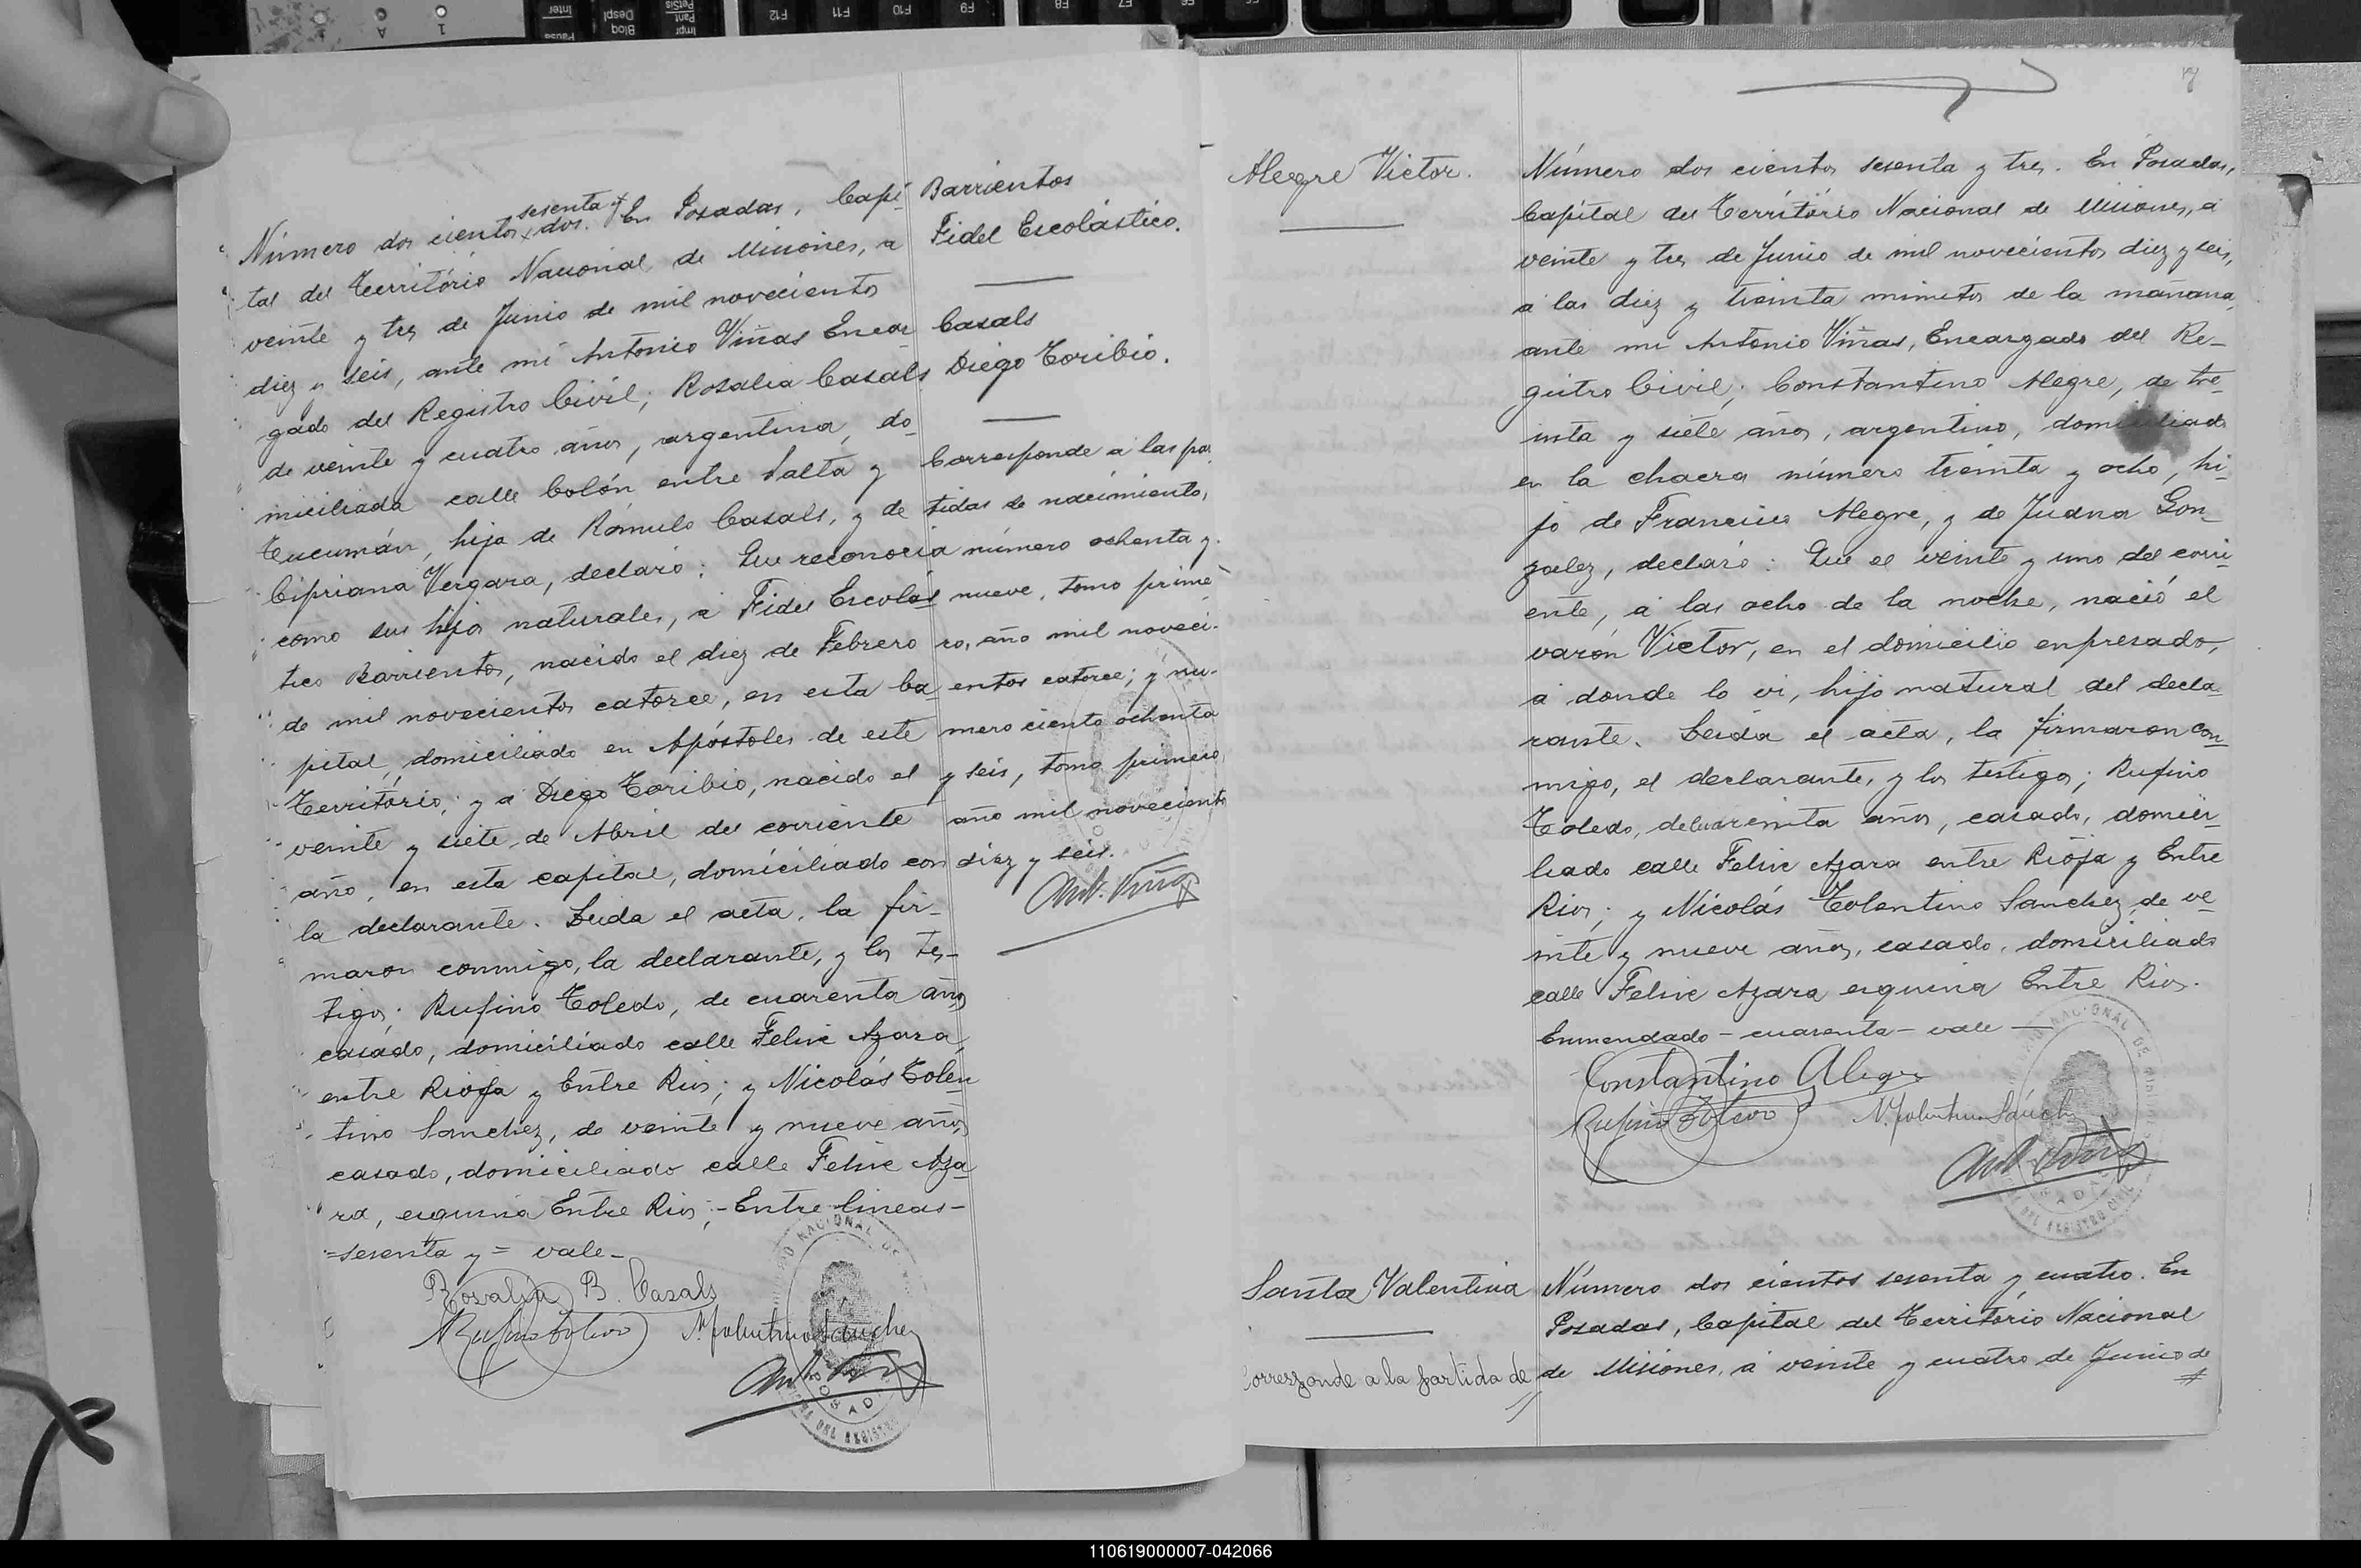 sesenta y
Número dos cientos dos. En Posadas, Capi-
tal del Território Nacional de Misiones, a
veinte y tres de Junio de mil novecientos
diez y seis, ante mi Antonio Viñas Encar-
gado del Registro Civil; Rosalia Casals
de veinte y cuatro años, argentina, do-
miciliada calle Colón entre Salta y
Tucumán, hija de Rómulo Casals, y de
Cipriana Vergara, declaró: Que reconocia
como sus hijos naturales, a Fidel Escolás-
tico Barrientos, nacido el diez de Febrero
de mil novecientos catorce, en esta Ca-
pital, domiciliado en Apóstoles de este
Território; y a Diego Toribio, nacido el
veinte y siete de Abril del corriente
año, en esta capital, domiciliado con
la declarante. Leida el acta, la fir-
maron conmigo, la declarante, y los tes-
tigos; Rufino Toledo, de cuarenta años
casado, domiciliado calle Felix Azara,
entre Rioja y Entre Rios; y Nicolás Tolen
tino Sanchez, de veinte y nueve años,
casado, domiciliado calle Felix Aza-
ra, esquina Entre Rios;-Entre lineas-
=sesenta y= vale-
Rosalia B. Casals
Rufino Toledo N. Tolentino Sánchez
Ant. Viñas
Barrientos
Fidel Escolástico.
Casals
Diego Toribio.
Corresponde a las par
tidas de nacimiento,
número ochenta y
nueve, tomo prime-
ro, año mil noveci-
entos catorce; y nú-
mero ciento ochenta
y seis, tomo primero,
año mil novecientos
diez y seis.
Ant. Viñas
Alegre Victor.
Número dos cientos sesenta y tres. En Posadas,
Capital del Território Nacional de Misiones, a
veinte y tres de Junio de mil novecientos diez y seis,
a las diez y treinta minutos de la mañana,
ante mi Antonio Viñas, Encargado del Re-
gistro Civil; Constantino Alegre, de tre-
inta y siete años, argentino, domiciliado
en la chacra número treinta y ocho, hi-
jo de Francisco Alegre, y de Juana Gon-
zalez, declaró: Que el veinte y uno del corri-
ente, a las ocho de la noche, nació el
varón Victor, en el domicilio expresado,
a donde lo vi, hijo natural del decla-
rante. Leida el acta, la firmaron con-
migo, el declarante, y los testigos; Rufino
Toledo, de cuarenta años, casado, domici-
liado calle Felix Azara entre Rioja y Entre
Rios; y Nicolás Tolentino Sanchez, de ve-
inte y nueve años, casado, domiciliado
calle Felix Azara esquina Entre Rios.
Enmendado - cuarenta - vale -
Constantino Alegre
Rufino Toledo N. Tolentino Sánchez
Ant. Viñas
Santa Valentina
Corresponde a la partida de
Número dos cientos sesenta y cuatro. En
Posadas, Capital del Território Nacional
de Misiones, a veinte y cuatro de Junio de
110619000007-042066